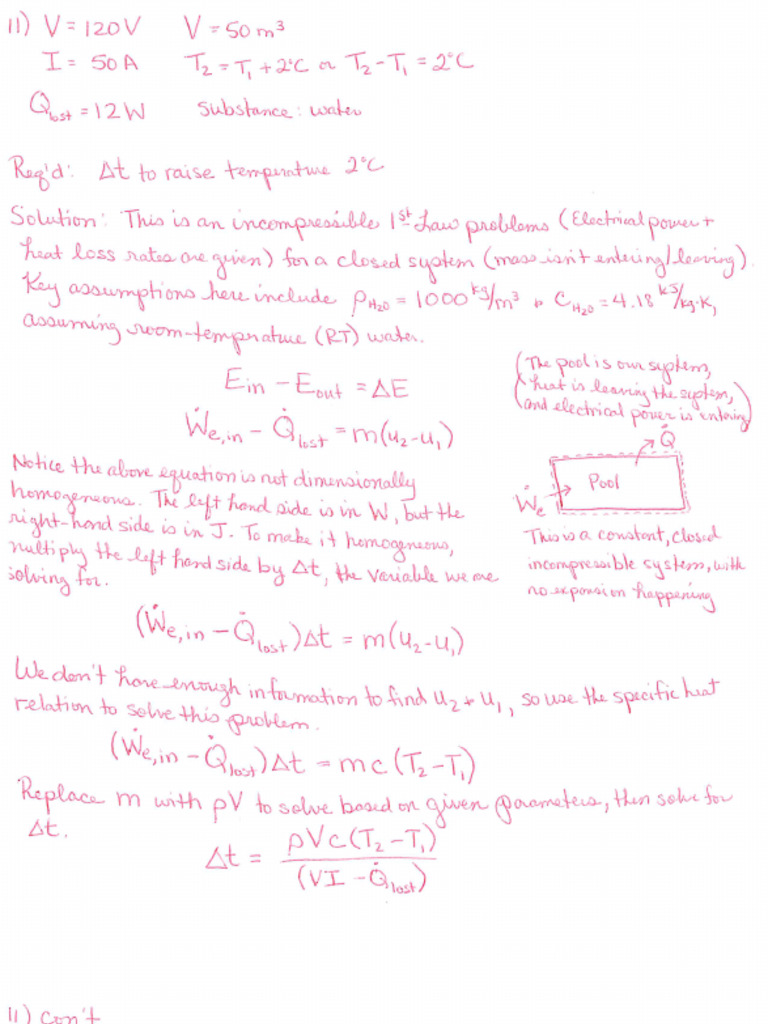 11) V = 120V V = 50 m³
I = 50 A T₂ = T₁ + 2°C or T₂-T₁ = 2°C
Q̇lost = 12 W substance: water
Req'd: Δt to raise temperature 2°C
Solution: This is an incompressible 1st Law problems (Electrical power +
heat loss rates are given) for a closed system (mass isn't entering/leaving).
Key assumptions here include ρH2O = 1000 kg/m³ + CH2O = 4.18 kJ/kg·K,
assuming room-temperature (RT) water.
Ein - Eout = ΔE
Ẇe,in - Q̇lost = m(u₂-u₁)
(The pool is our system,
heat is leaving the system,
and electrical power is entering)
Q̇
Pool
Ẇe
This is a constant, closed
incompressible system, with
no expansion happening
Notice the above equation is not dimensionally
homogeneous. The left hand side is in W, but the
right-hand side is in J. To make it homogeneous,
multiply the left hand side by Δt, the variable we are
solving for.
(Ẇe,in - Q̇lost)Δt = m(u₂-u₁)
We don't have enough information to find u₂ + u₁, so use the specific heat
relation to solve this problem.
(Ẇe,in - Q̇lost)Δt = mc(T₂-T₁)
Replace m with ρV to solve based on given parameters, then solve for
Δt.
Δt = ρVc(T₂-T₁)
(VI - Q̇lost)
11) con't